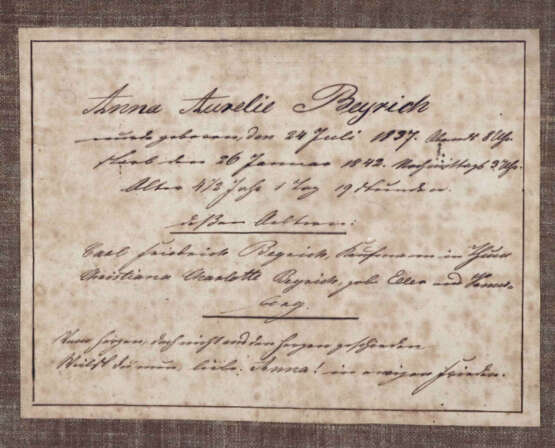 Anna Aurelie Beyrich
wurde geboren, den 24 Juli 1837. Abends 8 Uhr.
starb den 26 Januar 1842. Nachmittags 3 Uhr.
Alter 4 1/2 Jahr 1 Tag 19 Stunden.
deßen Aeltern:
Carl Friedrich Beyrich, Kaufmann in
Christiana Charlotte Beyrich, geb. aus
Vom Herzen, doch nicht aus den Herzen geschieden
du nun, liebe Anna! in ewigen Frieden.